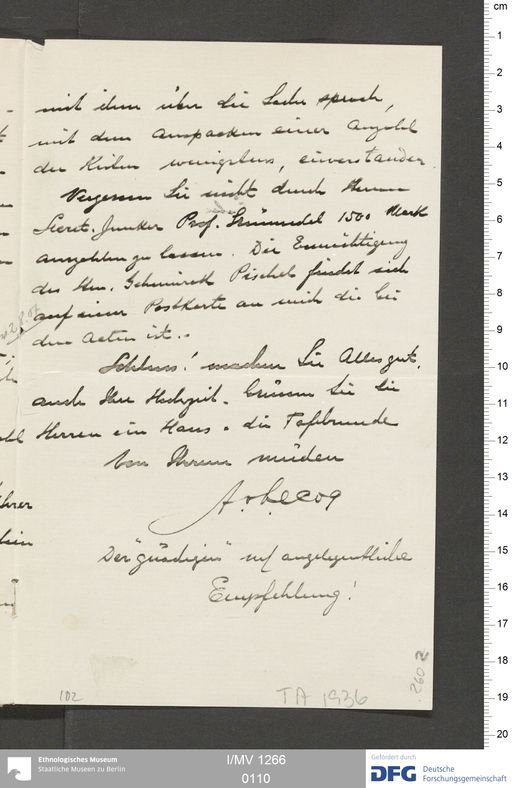 mit ihm über die Sache sprach,
mit dem Auspacken einer Anzahl
der Kisten wenigstens, einverstanden
Vergessen Sie nicht durch Herrn
Secret. Junker Prof. Grünwedel 1500 Mark
auszahlen zu lassen. Die Ermächtigung
des Hrn. Geheimrath Pischel findet sich
auf einer Postkarte an mich die bei
den Acten ist.
Schluss! machen Sie Alles gut,
auch Ihre Hochzeit. Grüssen Sie die
Herren im Haus u. die Tafelrunde
von Ihrem müden
A. v. Le Coq
Der "Gnädigen" angelegentliche
Empfehlung!
102
TA 1936
260
cm
1
2
3
4
5
6
7
8
9
10
11
12
13
14
15
16
17
18
19
20
Ethnologisches Museum
Staatliche Museen zu Berlin
I/MV 1266
0110
Gefördert durch
DFG
Deutsche
Forschungsgemeinschaft